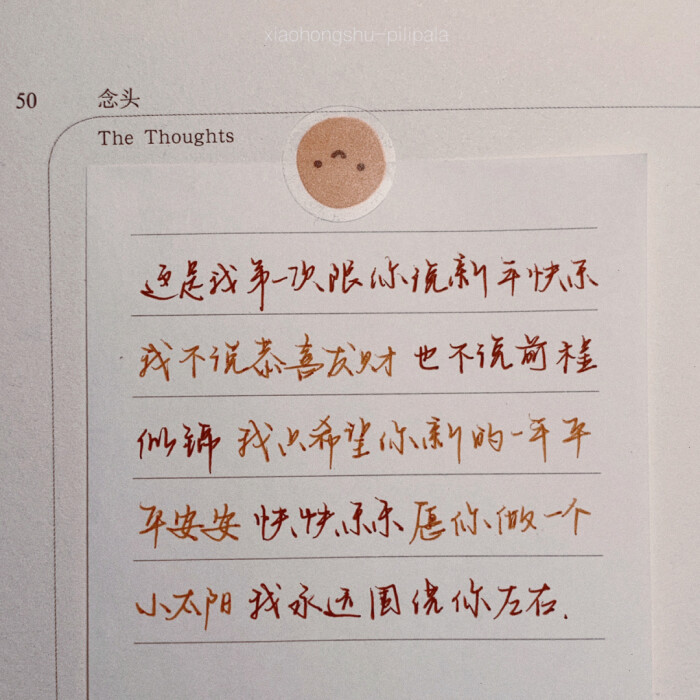 xiaohongshu-pilipala
50 念头
The Thoughts
这是我第一次跟你说新年快乐
我不说恭喜发财 也不说前程
似锦 我只希望你新的一年平
平安安 快快乐乐 愿你做一个
小太阳 我永远围绕你左右.